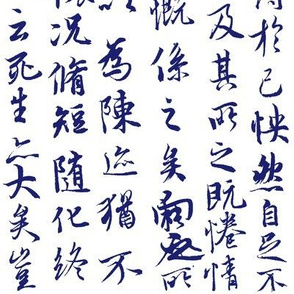 於己怏然自足不
及其所之既惓情
慨係之矣向之所
以為陳迹猶不
況脩短隨化終
云死生亦大矣豈